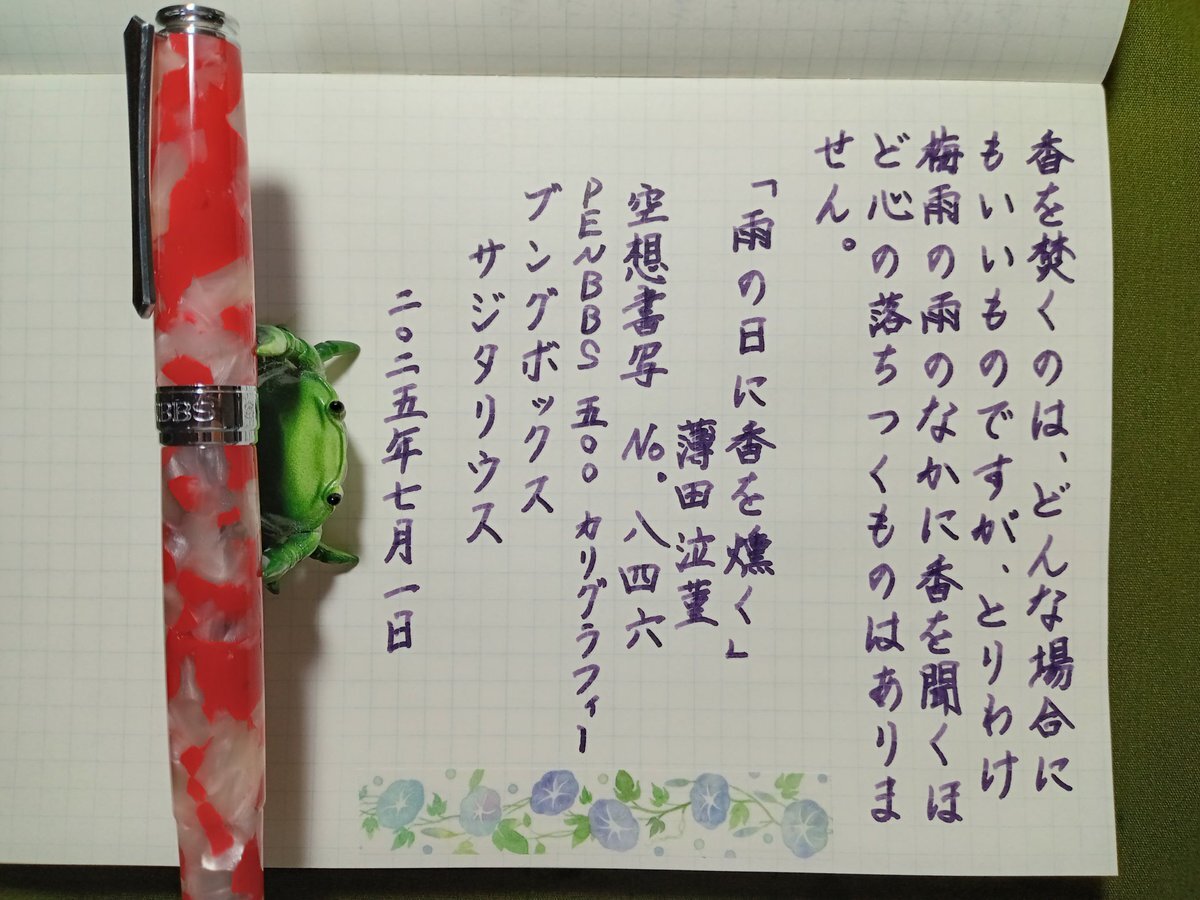 香を焚くのは、どんな場合に
もいいものですが、とりわけ
梅雨の雨のなかに香を聞くほ
ど心の落ちつくものはありま
せん。
「雨の日に香を燻く」
薄田泣菫
空想書写 No.八四六
PENBBS 五〇〇 カリグラフィー
ブングボックス
サジタリウス
二〇二五年七月一日
BBS